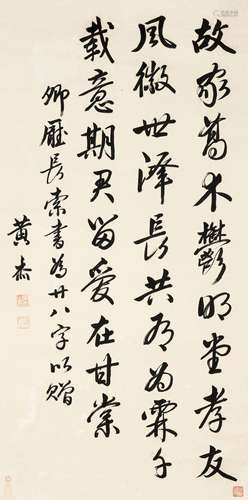 故家喬木鬱明堂孝友
風徽世澤長共有為霖千
載意期君留愛在甘棠
卿廳長索書為廿八字以贈
黄杰